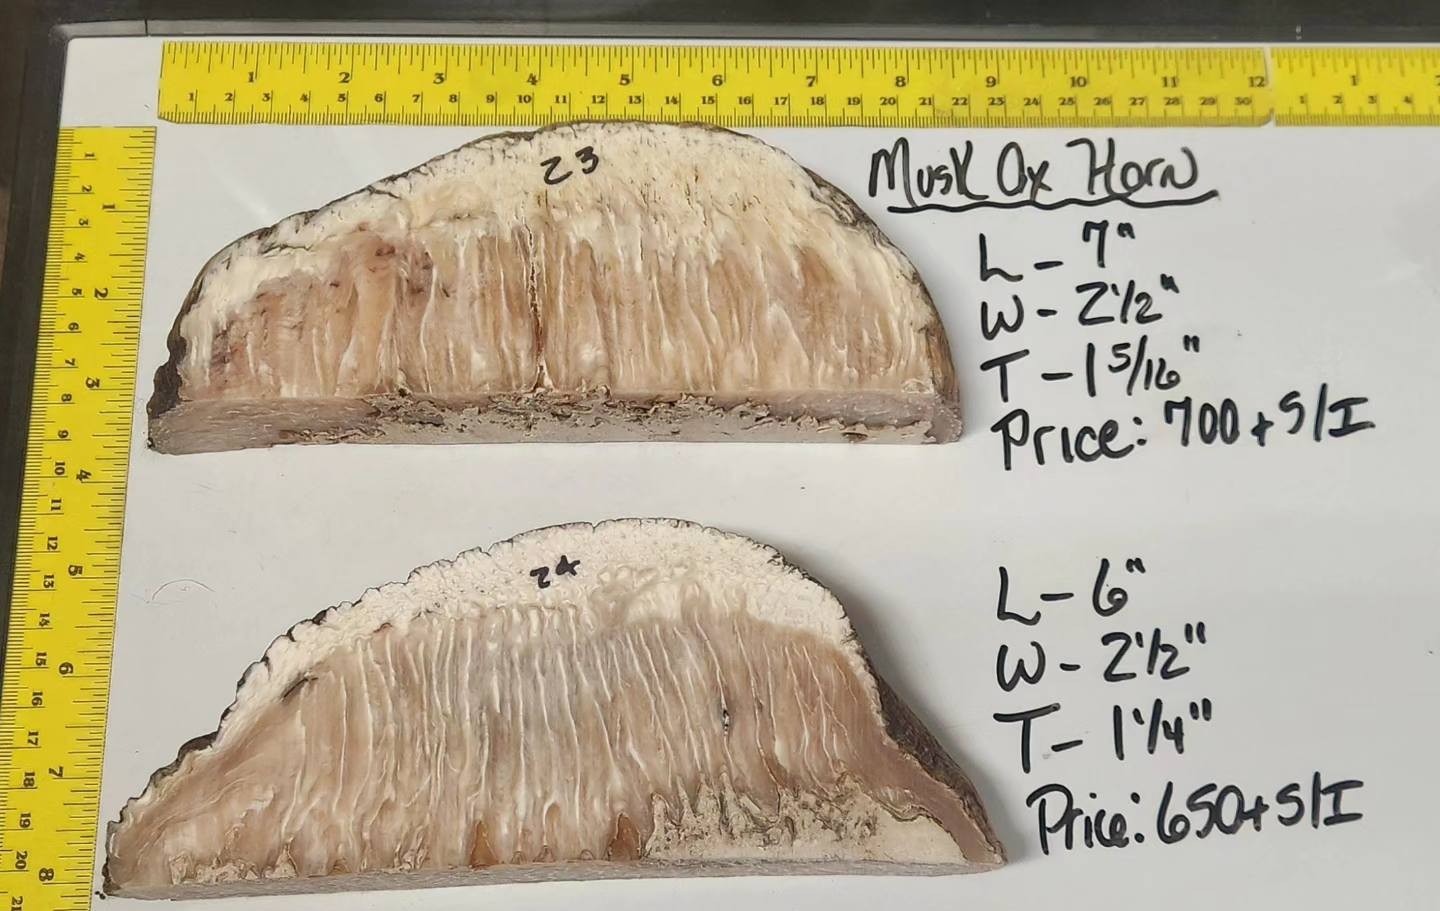 1 2 3 4 5 6 7 8 9 10 11 12 1
1 2 3 4 5 6 7 8 9 10 11 12 13 14 15 16 17 18 19 20 21 22 23 24 25 26 27 28 29 30 1 2 3 4
1 2 3 4 5 6 7 8
1 2 3 4 5 6 7 8 9 10 11 12 13 14 15 16 17 18 19 20 21
23
Musk Ox Horn
L - 7"
W - 2 1/2"
T - 1 5/16"
Price: 700 + S/I
24
L - 6"
W - 2 1/2"
T - 1 1/4"
Price: 650 + S/I